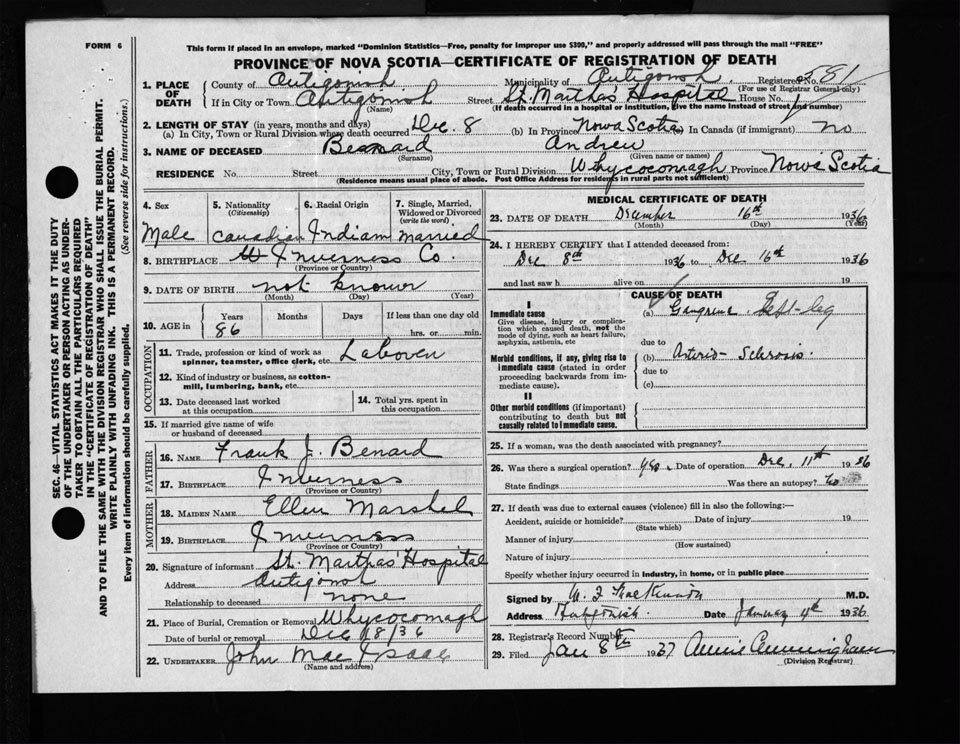 FORM 6
This form if placed in an envelope, marked "Dominion Statistics—Free, penalty for improper use $300," and properly addressed will pass through the mail "FREE"
PROVINCE OF NOVA SCOTIA—CERTIFICATE OF REGISTRATION OF DEATH
1. PLACE OF DEATH County of Antigonish Municipality of Antigonish Registered No. 581
(For use of Registrar General only)
If in City or Town Antigonish Street St. Marthas Hospital House No.
(Name) (If death occurred in a hospital or institution, give the name instead of street and number)
2. LENGTH OF STAY (in years, months and days)
(a) In City, Town or Rural Division where death occurred Dec. 8 (b) In Province Nova Scotia In Canada (if immigrant) no
3. NAME OF DECEASED Bernard Andrew
(Surname) (Given name or names)
RESIDENCE No. Street City, Town or Rural Division Whycocomagh Province Nova Scotia
(Residence means usual place of abode. Post Office Address for residents in rural parts not sufficient)
4. Sex Male
5. Nationality (Citizenship) Canadian
6. Racial Origin Indian
7. Single, Married, Widowed or Divorced (write the word) married
8. BIRTHPLACE Inverness Co.
(Province or Country)
9. DATE OF BIRTH not known
(Month) (Day) (Year)
10. AGE in Years 86 Months Days If less than one day old
hrs. or min.
OCCUPATION
11. Trade, profession or kind of work as spinner, teamster, office clerk, etc. Laborer
12. Kind of industry or business, as cotton-mill, lumbering, bank, etc.
13. Date deceased last worked at this occupation
14. Total yrs. spent in this occupation
15. If married give name of wife or husband of deceased
FATHER
16. NAME Frank J. Benard
17. BIRTHPLACE Inverness
(Province or Country)
MOTHER
18. MAIDEN NAME Ellen Marshel
19. BIRTHPLACE Inverness
(Province or Country)
20. Signature of informant St. Marthas' Hospital
Address Antigonish
Relationship to deceased none
21. Place of Burial, Cremation or Removal Whycocomagh
Date of burial or removal Dec 18/36
22. UNDERTAKER John Mac Isaac
(Name and address)
MEDICAL CERTIFICATE OF DEATH
23. DATE OF DEATH December 16th 1936
(Month) (Day) (Year)
24. I HEREBY CERTIFY that I attended deceased from:
Dec 8th 1936 to Dec 16th 1936
and last saw h alive on 19
CAUSE OF DEATH
I
Immediate cause
Give disease, injury or complication which caused death, not the mode of dying, such as heart failure, asphyxia, asthenia, etc
(a) Gangrene left leg
due to
Morbid conditions, if any, giving rise to immediate cause (stated in order proceeding backwards from immediate cause).
(b) Arterio-Sclerosis.
due to
(c)
II
Other morbid conditions (if important) contributing to death but not causally related to immediate cause.
25. If a woman, was the death associated with pregnancy?
26. Was there a surgical operation? yes Date of operation Dec. 11th 1936
State findings Was there an autopsy? no
27. If death was due to external causes (violence) fill in also the following:—
Accident, suicide or homicide? Date of injury 19
(State which)
Manner of injury
(How sustained)
Nature of injury
Specify whether injury occurred in industry, in home, or in public place
Signed by MacKinnon M.D.
Address Antigonish Date January 4th 1936
28. Registrar's Record Number
29. Filed Jan 8th 1937 Annie Cunningham
(Division Registrar)
SEC. 46—VITAL STATISTICS ACT MAKES IT THE DUTY
OF THE UNDERTAKER OR PERSON ACTING AS UNDER-
TAKER TO OBTAIN ALL THE PARTICULARS REQUIRED
IN THE "CERTIFICATE OF REGISTRATION OF DEATH"
AND TO FILE THE SAME WITH THE DIVISION REGISTRAR WHO SHALL ISSUE THE BURIAL PERMIT.
WRITE PLAINLY WITH UNFADING INK. THIS IS A PERMANENT RECORD.
Every item of information should be carefully supplied. (See reverse side for instructions.)